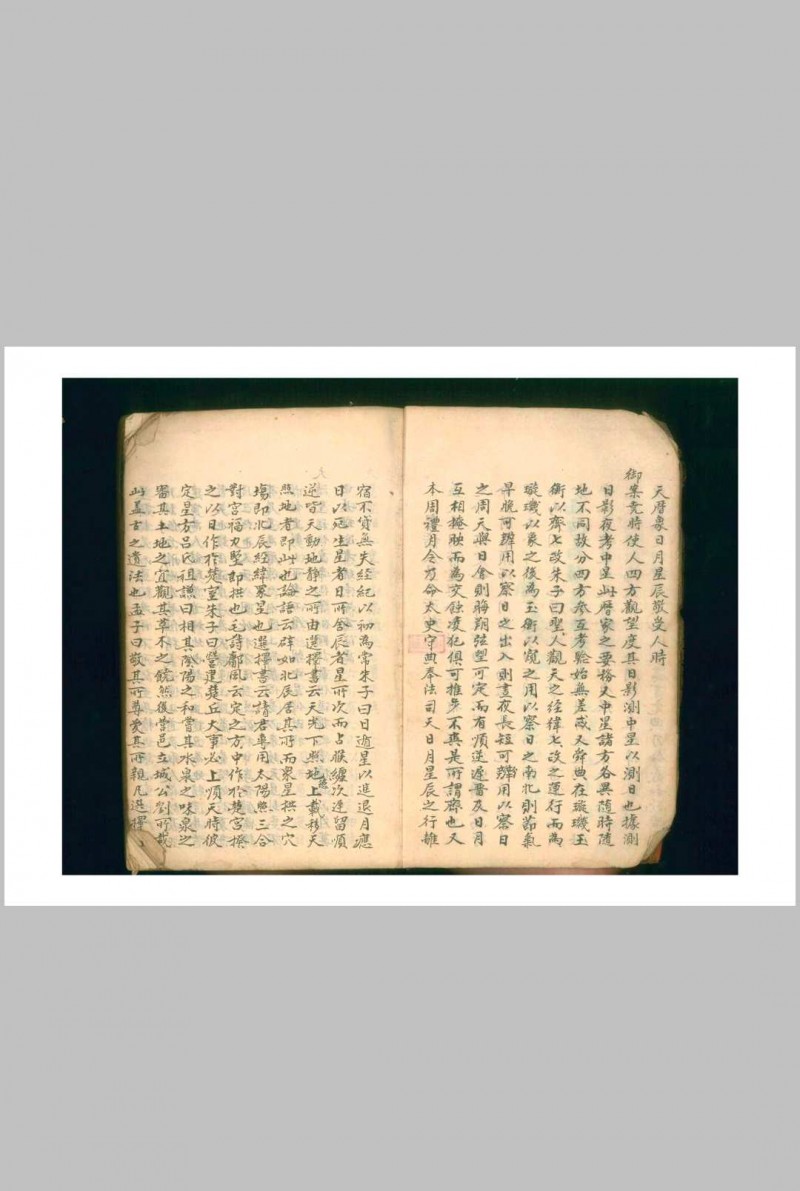 天曆象日月星辰敬受人時
御案堯時使人四方觀望度其日影測中星以測日也據測
日影夜考中星此曆家之要務又中星諸方各異隨時隨
地不同故分四方參互考驗始無差忒又舜典在璇璣玉
衡以齊七政朱子曰聖人觀天之經緯七政之運行而為
璇璣以象之後為玉衡以窺之用以察日之南北則節氣
早晚可辨用以察日之出入則晝夜長短可辨用以察日
之周天與日會則晦朔弦望可定而有順逆遲疾及日月
互相掩映而為交蝕凌犯俱可推步不爽是所謂齊也又
本周禮月令乃命太史守典奉法司天日月星辰之行離
宿不貸無失經紀以初為常朱子曰日逝星以進退月應
日以死生星者日所舍辰者星所次而占候纏次逆留順
逆皆天動地靜之所由選擇書云天光下照地上載移天
照地者即此也論語云辟如北辰居其所而眾星拱之穴
塲即北辰經緯眾星也選擇書云請君專用太陽照三合
對宮福力堅即拱也毛詩鄘風云定之方中作於楚宮揆
之以日作於楚室朱子曰營建楚丘大事必上順天時彼
定星方呂氏祖謙曰相其陰陽之和嘗其水泉之味泉之
審其土地之宜觀其草木之饒然後營邑立城公劉所哉
此蓋古之遺法也孟子曰敬其所尊愛其所親凡選擇